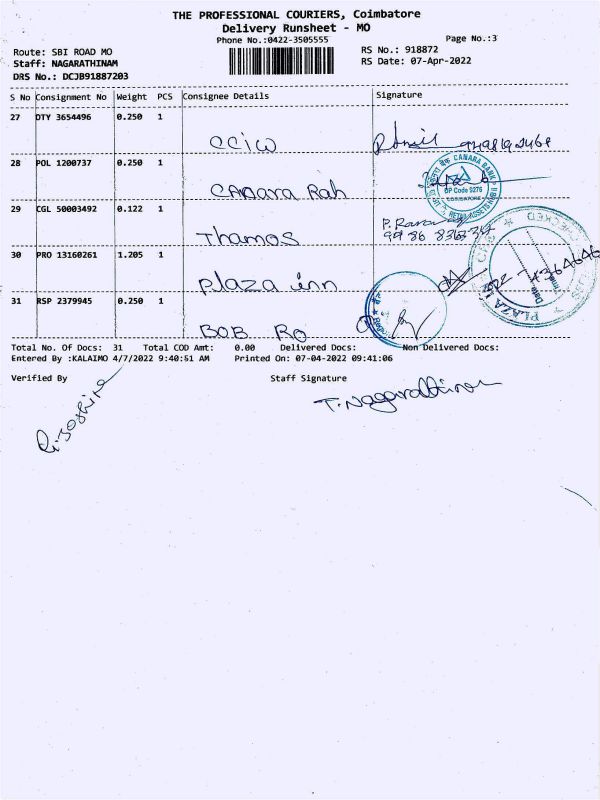 THE PROFESSIONAL COURIERS, Coimbatore
Delivery Runsheet - MO
Phone No.:0422-3505555
Page No.:3
Route: SBI ROAD MO
RS No.: 918872
Staff: NAGARATHINAM
RS Date: 07-Apr-2022
DRS No.: DCJB91887203
S No Consignment No Weight PCS Consignee Details Signature
27 DTY 3654496 0.250 1
CCIW
28 POL 1200737 0.250 1
CANARA BANK
DP Code 9276
COIMBATORE
CANARA Rah
29 CGL 50003492 0.122 1
Thamos
30 PRO 13160261 1.205 1
Plaza inn
31 RSP 2379945 0.250 1
BOB RO
Total No. Of Docs: 31 Total COD Amt: 0.00 Delivered Docs: Non Delivered Docs:
Entered By :KALAIMO 4/7/2022 9:40:51 AM Printed On: 07-04-2022 09:41:06
Verified By Staff Signature
T. Nagarathinam